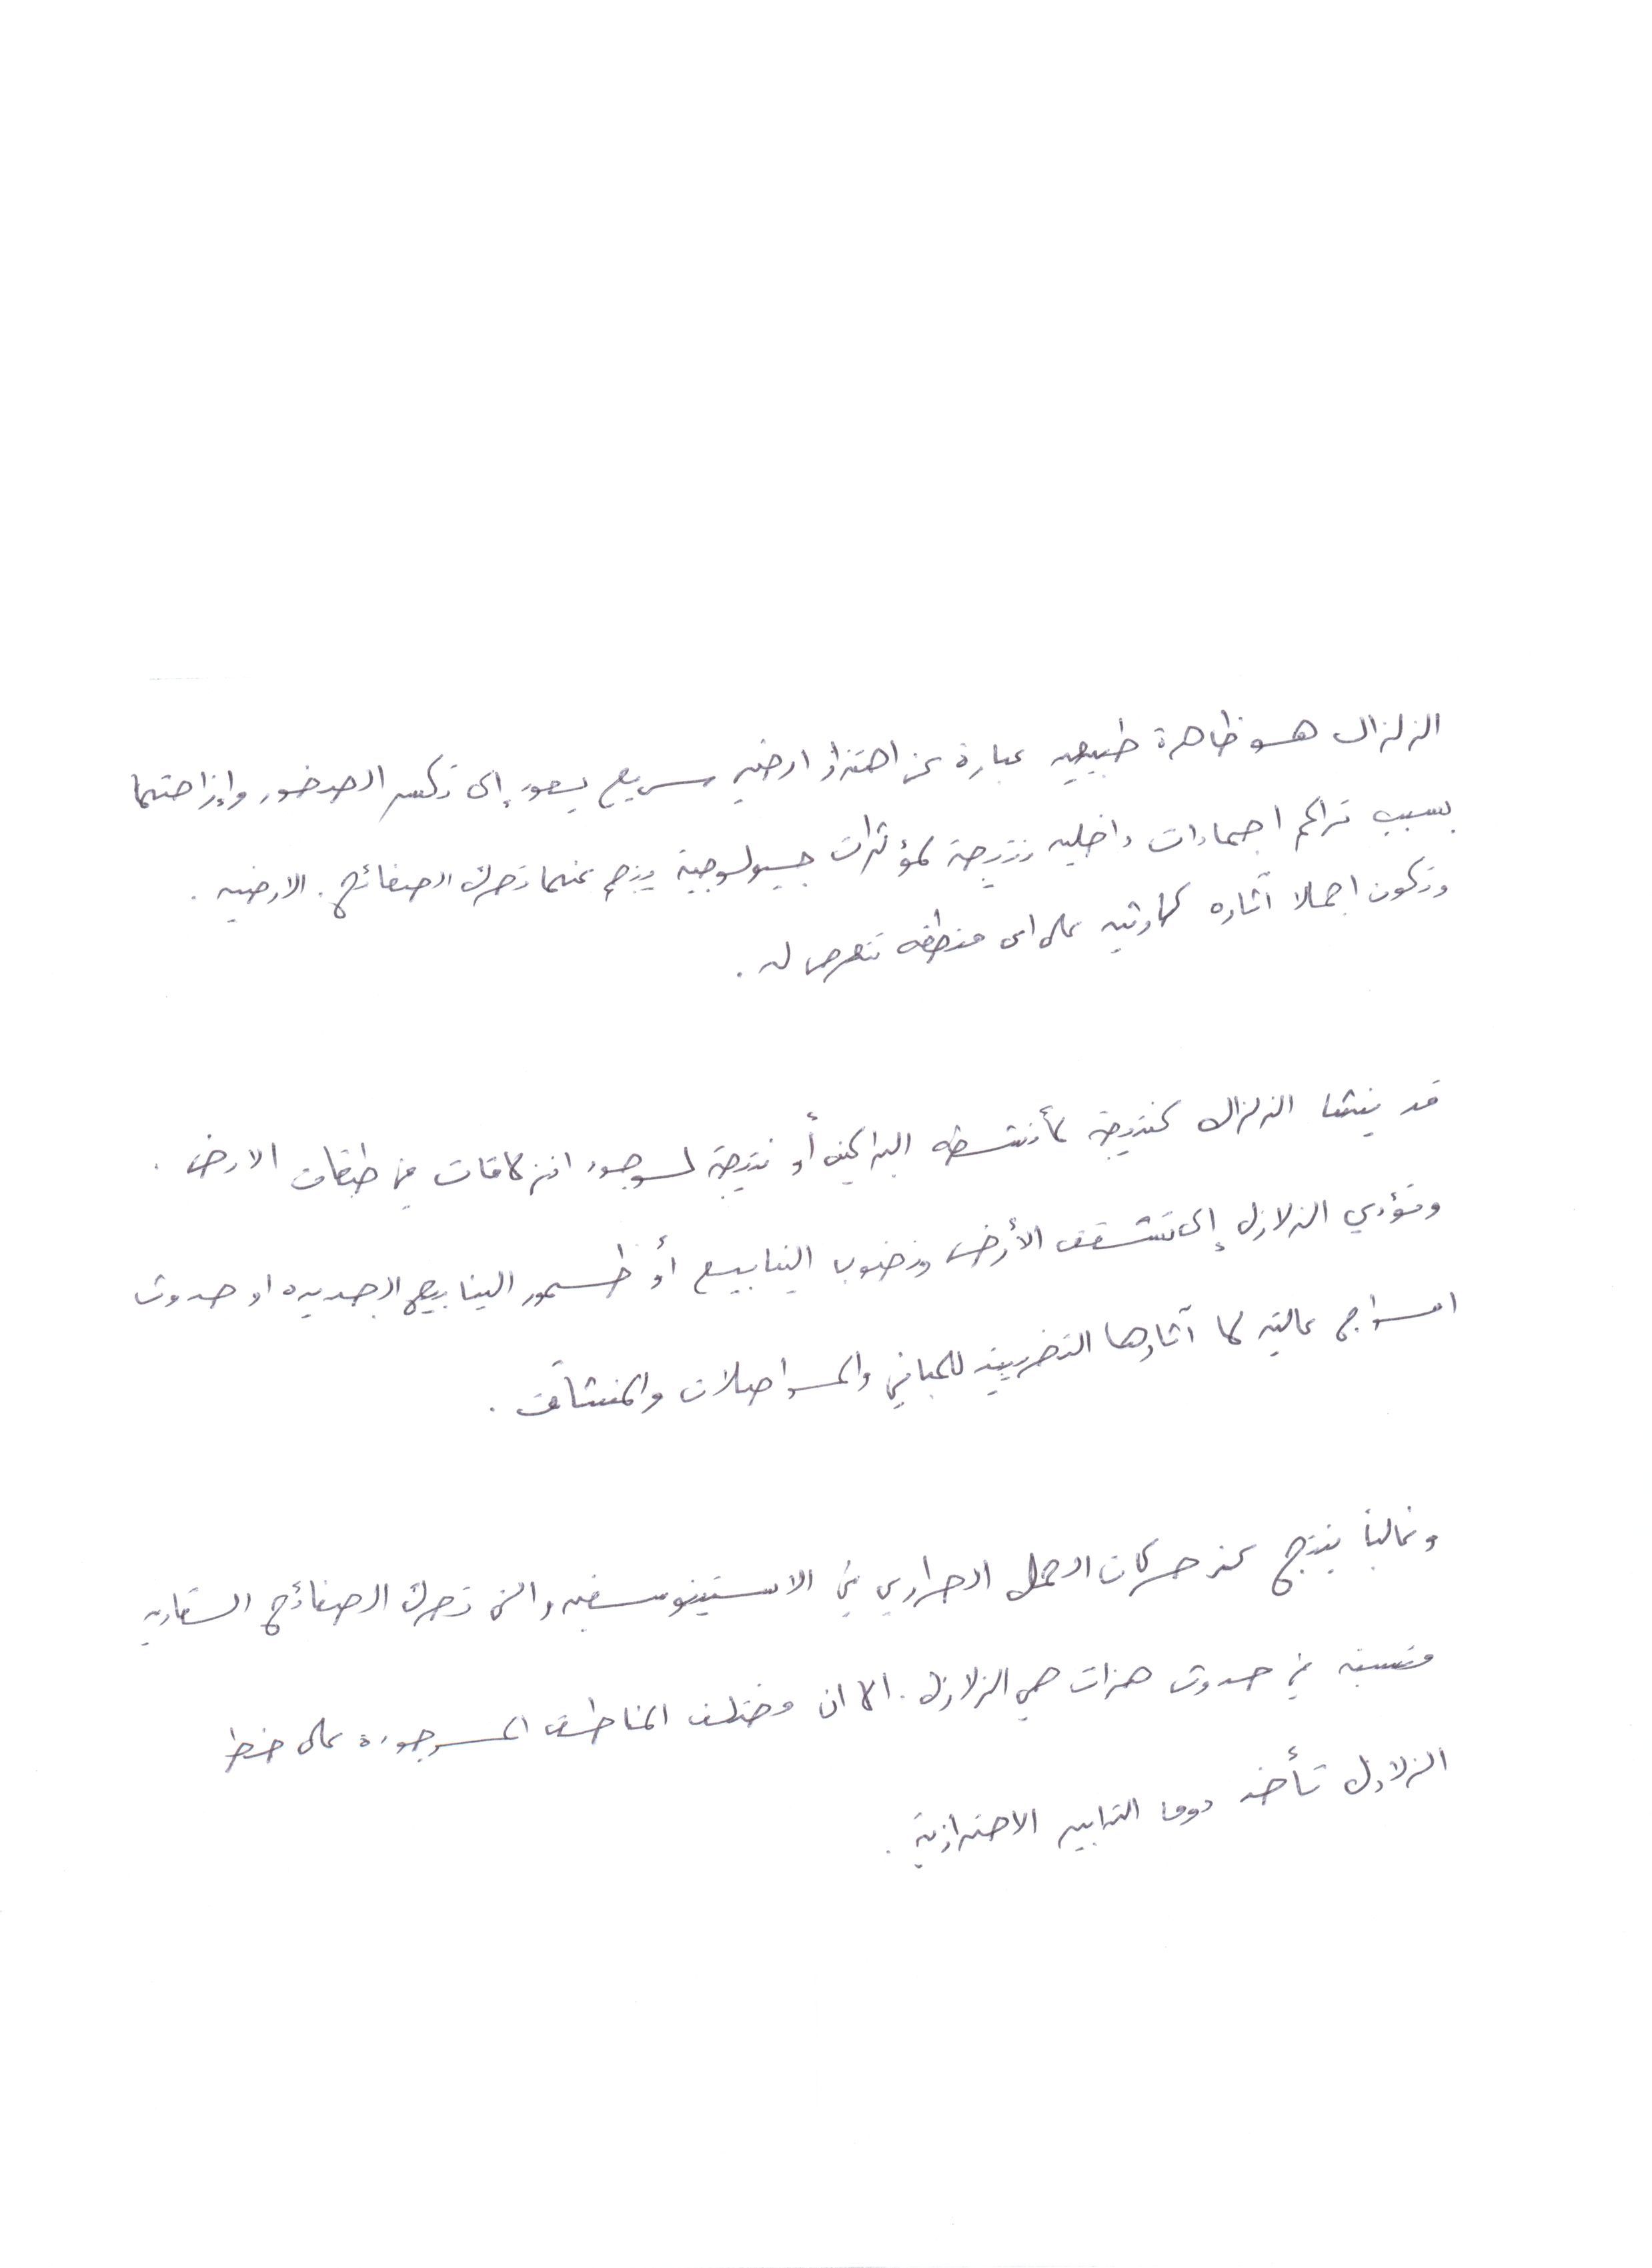 الزلزال هو ظاهرة طبيعيه عبارة عن اهتزاز ارضي سريع يعود إلى تكسر الصخور وإزاحتها
بسبب تراكم اجهادات داخليه نتيجة لمؤثرات جيولوجية ينجم عنها تحرك الصفائح الارضيه .
وتكون اجمالا آثاره كارثيه على اى منطقه تتعرض له .
قد ينشا الزلزال كنتيجة لأنشطه البراكين أو نتيجة لوجود انزلاقات في طبقات الارض .
وتؤدي الزلازل إلى تشقق الأرض ونضوب الينابيع أو ظهور الينابيع الجديده او حدوث
امواج عالية كما آثارها التخريبية للمباني والمواصلات والمنشآت .
وغالبا ينتج عن حركات الحمل الحراري في الاستينوسفير والتي تحرك الصفائح القاريه
متسببه في حدوث هزات هي الزلازل . الا ان مختلف المناطق الموجودة على خط
الزلازل تأخذ دوما التدابير الاحترازية .